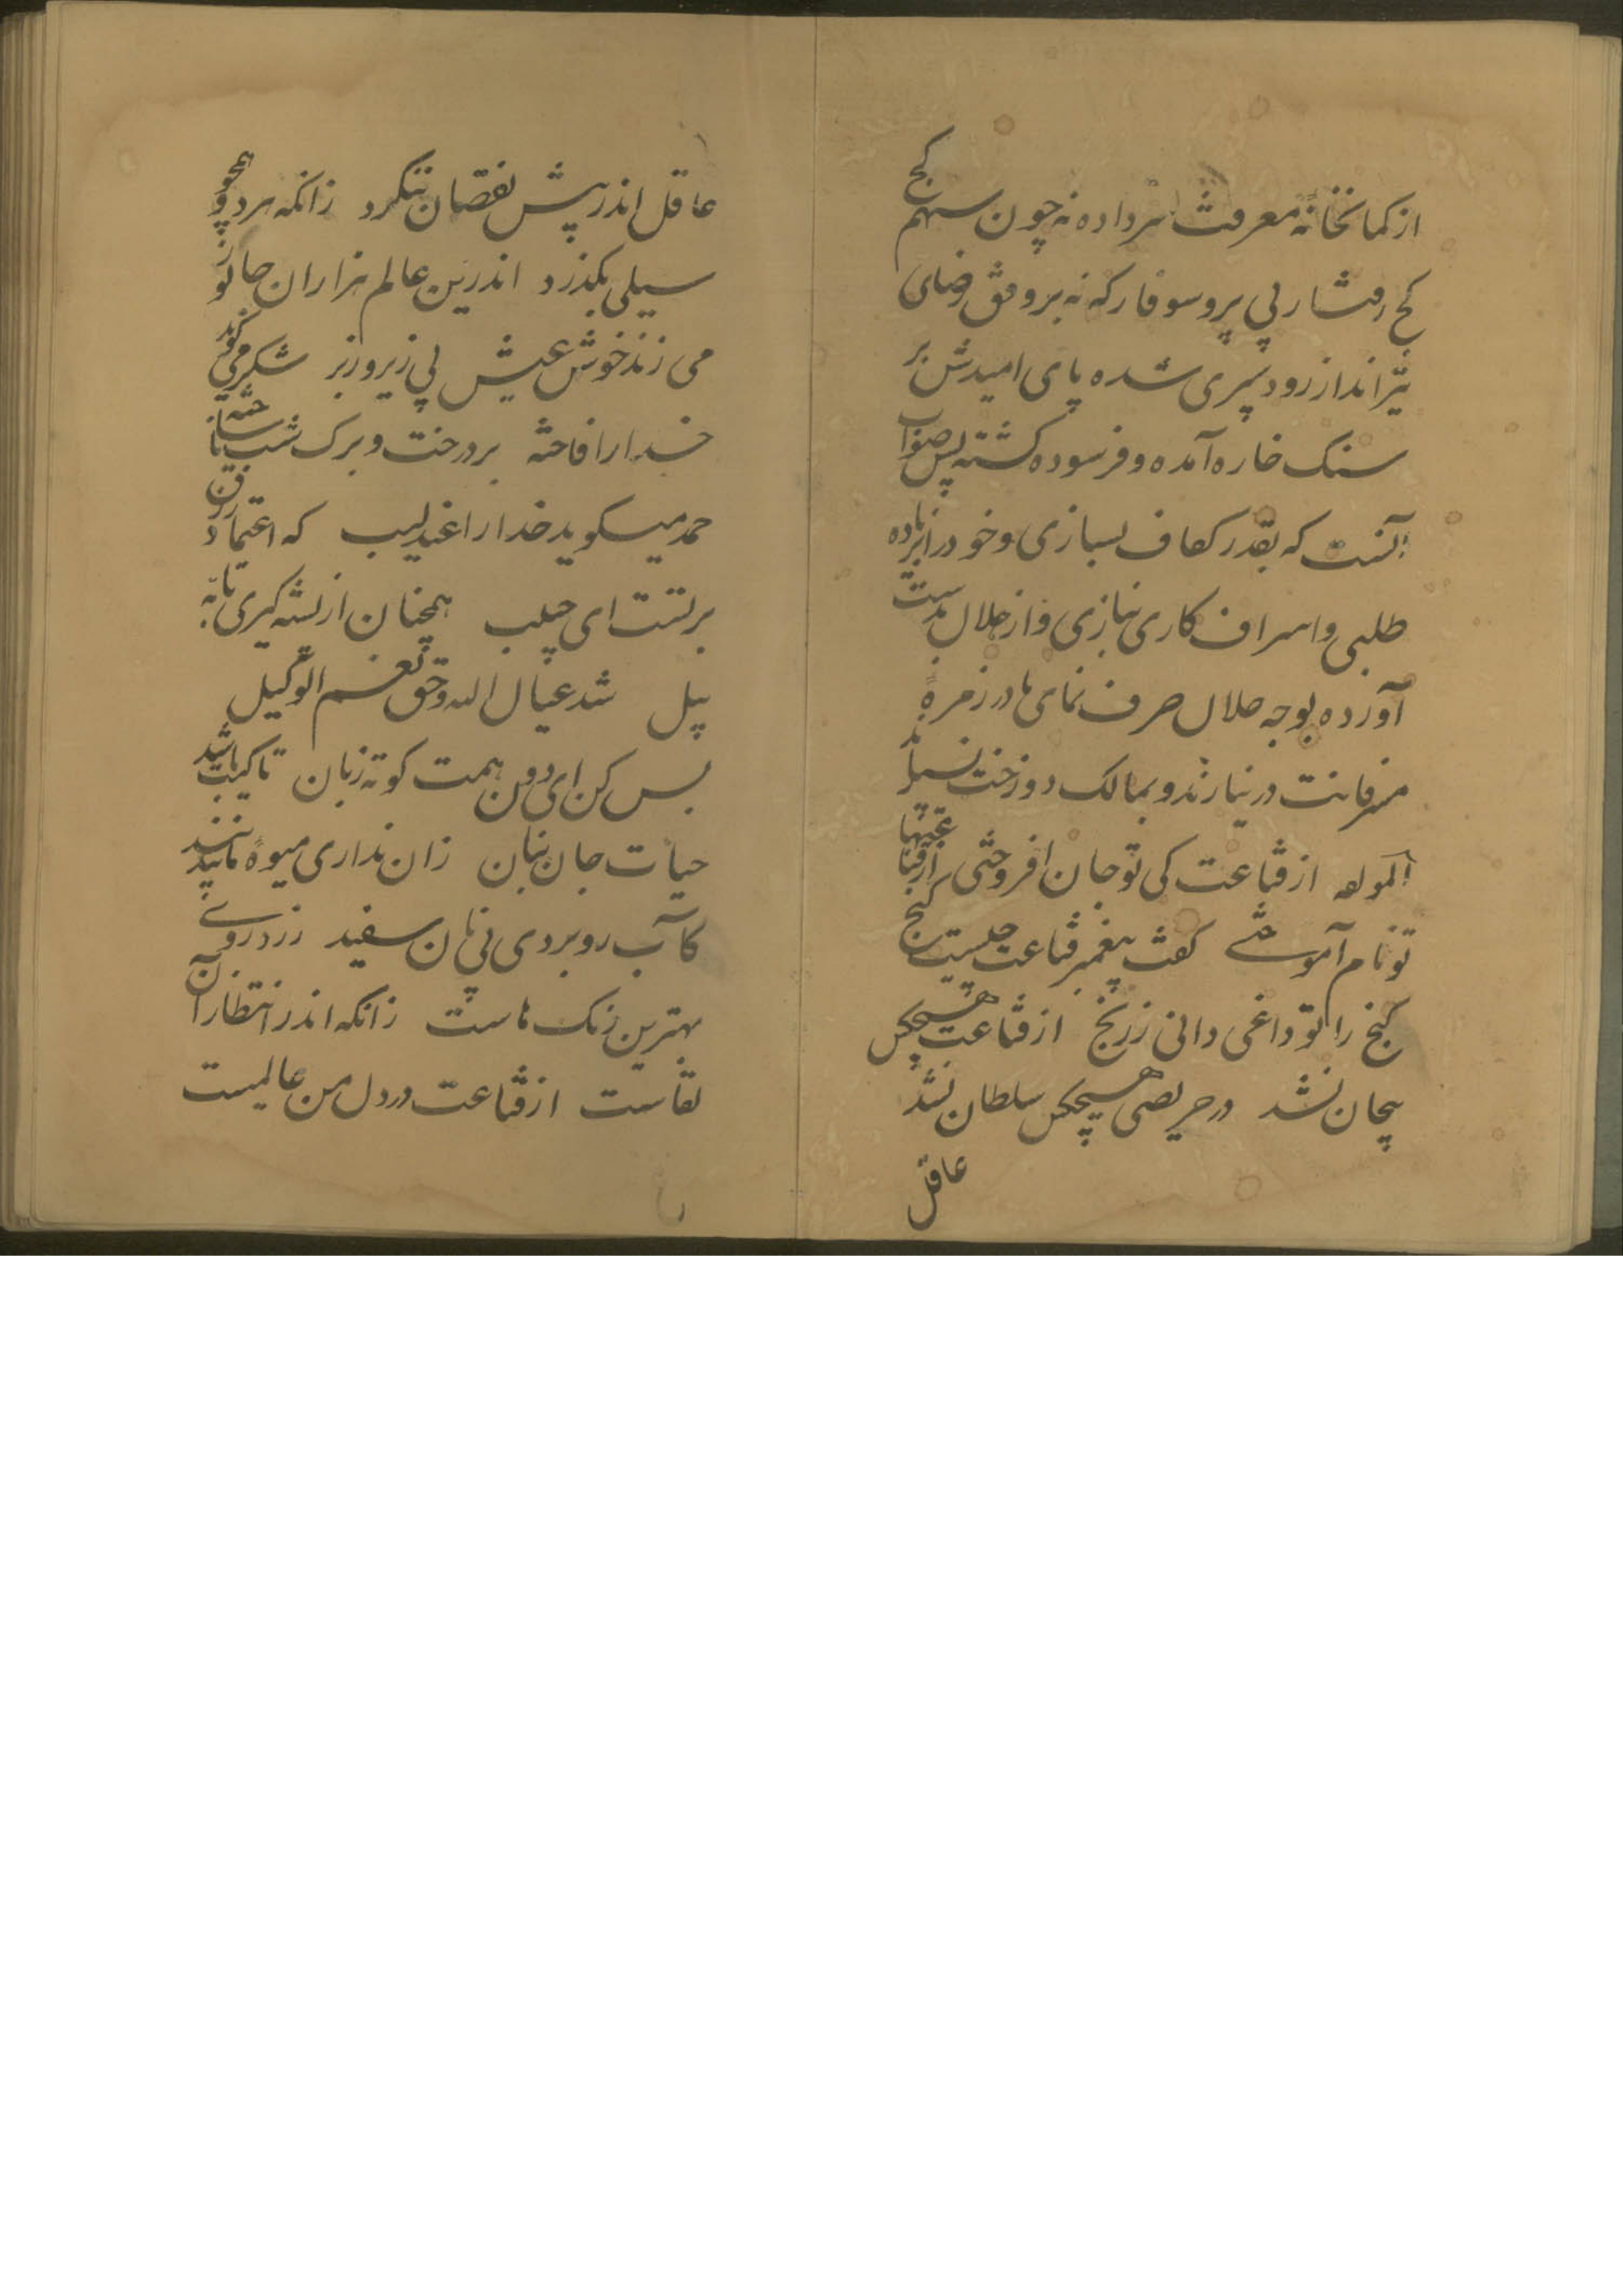 از کمانخانه معرفت سر داده نه چون سهم کج
کج رفتار بی پر و سوفار که نه بر وفق رضای
تیرانداز رود سپری شده پای امیدش بر
سنک خاره آمده و فرسوده کشته پس صواب
آنست که بقدر کفاف بسازی و خود را بزیاده
طلبی و اسراف کاری نیازی و از حلال بدست
آورده بوجه حلال صرف نمای تا در زمرهٔ
مسرفانت در نیارند و بمالک دوزخت نسپارند
لمولفه از قناعت کی تو جان افروختی از قناعتها
تو نام آموختی کفت پیغمبر قناعت چیست کنج
کنج را تو وا نمی دانی ز رنج از قناعت هیچکس
بیجان نشد در حریصی هیچکس سلطان نشد
عاقل
عاقل اندر پیش نقصان ننکرد زانکه هر دو همچو
سیلی بکذرد اندرین عالم هزاران جانور
می زند خوش عیش بی زیر و زبر شکر می کوید
خدا را فاخته بر درخت و برک شب نا ساخته
حمد میکوید خدا را عندلیب که اعتماد رزق
برتست ای مجیب همچنان از پشه کیری تا به
پیل شد عیال الله و حق نعم الوکیل
بس کن ای دون همت کوته زبان تا کیت باشد
حیات جان بنان زان نداری میوه مانند بید
کآب رو بردی پی نان سفید زرد روی
بهترین رنک هاست زانکه اندر انتظار آن
لقاست از قناعت در دل من عالمیست